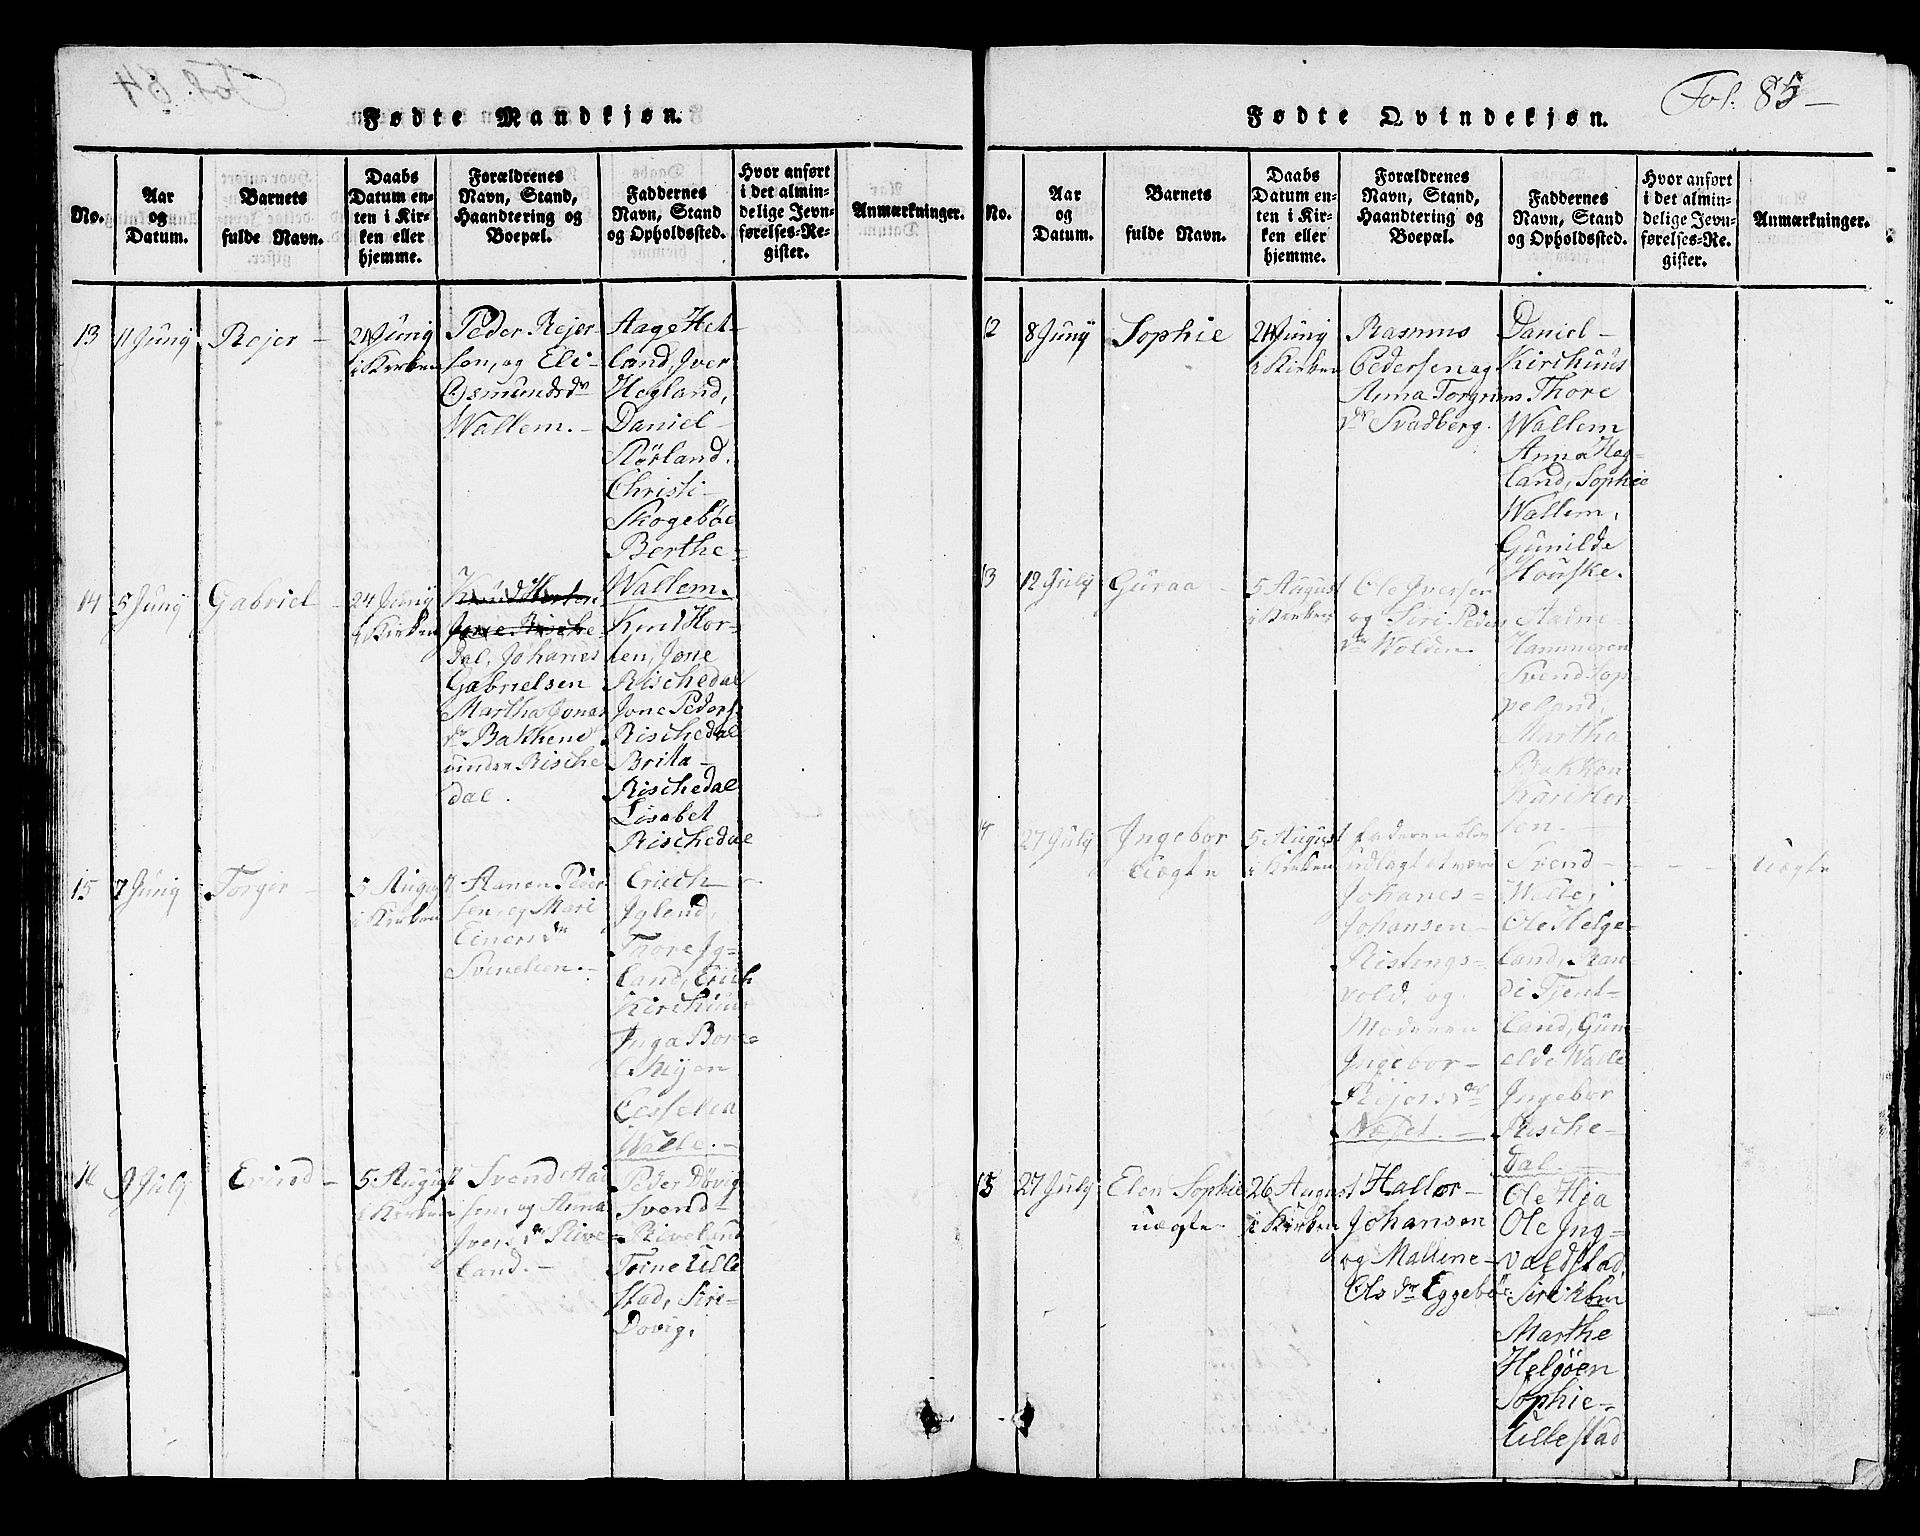 Fødte Mandkjøn.
No.
Aar
og
Datum.
Barnets
fulde Navn.
Daabs
Datum en-
ten i Kir-
ken eller
hjemme.
Forældrenes
Navn, Stand,
Haandtering og
Boepæl.
Faddernes
Navn, Stand
og Opholdssted.
Hvor anført
i det almin-
delige Jevn-
førelses-Re-
gister.
Anmærkninger.
13
11 Junÿ
Rejer
24 Junÿ
i Kirken
Peder Rejer-
sen, og Eli
Osmundsdr
Wallem.
Aage Het-
land, Iver
Hogland,
Daniel
Størland.
Christi
Skogebøe
Berthe
Wallem.
14
5 Junÿ
Gabriel
24 Junÿ
i Kirken
dal, Johanes
Gabrielsen
Martha Jonas
dr Bakkene
under Rische
dal.
Knut Hor-
ten, Jone
Rischedal
Jone Peders.
Rischedal
Britta
Rischedal
Lisabet
Rischedal
15
7 Junÿ
Torger
5 August
i Kirken
Aanen Peder
sen, og Mari
Einersdr
Svineleen.
Eriech
Iglend,
Thore Ig-
land, Erich
Kirchuus
Inga Bore
Walle.
16
9 Julÿ
5 August
i Kirken
Svend Aa
sen, og Anna
Ivers dr Rive
land.
Peder Døvig
Svend
Riveland
Torne Lille
stad, Siri
Dovig.
Fol. 85
Fødte Qvindekjøn.
No.
Aar
og
Datum.
Barnets
fulde Navn.
Daabs
Datum en-
ten i Kir-
ken eller
hjemme.
Forældrenes
Navn, Stand,
Haandtering og
Boepæl.
Faddernes
Navn, Stand
og Opholdssted.
Hvor anført
i det almin-
delige Jevn-
førelses-Re-
gister.
Anmærkninger.
12
8 Junÿ
Sophie
24 Junÿ
i Kirken
Rasmus
Pedersen og
Anna Torgrims
dr Svadberg.
Daniel
Kirchuus
Thore
Wallem
Anna Hog-
land, Sophie
Wallem,
Gunilde
Houske.
13
12 Julÿ
Guraa
5 August
i Kirken
Ole Iversen
og Siri Peders
dr Wolden
Hammeren
Svend Top-
peland,
Martha
Bakken
Kari Hor-
ten.
14
27 Julÿ
Ingebor
Uægte
5 August
i Kirken
Faderen blev
udlagt at være
Johanes
Johansen
Ristings-
vold, og
Moderen
Ingebor
Rejersdr
Næset.
Svend
Walle,
Ole Helge-
land, Ran-
di Tjent-
land, Gun-
elde Walle
Ingebor
Rische-
dal.
Uægte
15
27 Julÿ
Elen Sophie
uægte
26 August
i Kirken
Hallor
Johansen
og Mallene
Ols dr Eggebøe
Ole Hja
Ole Ing-
valdstad,
Siri
Marthe
Helgöen
Sophie
Lillestad